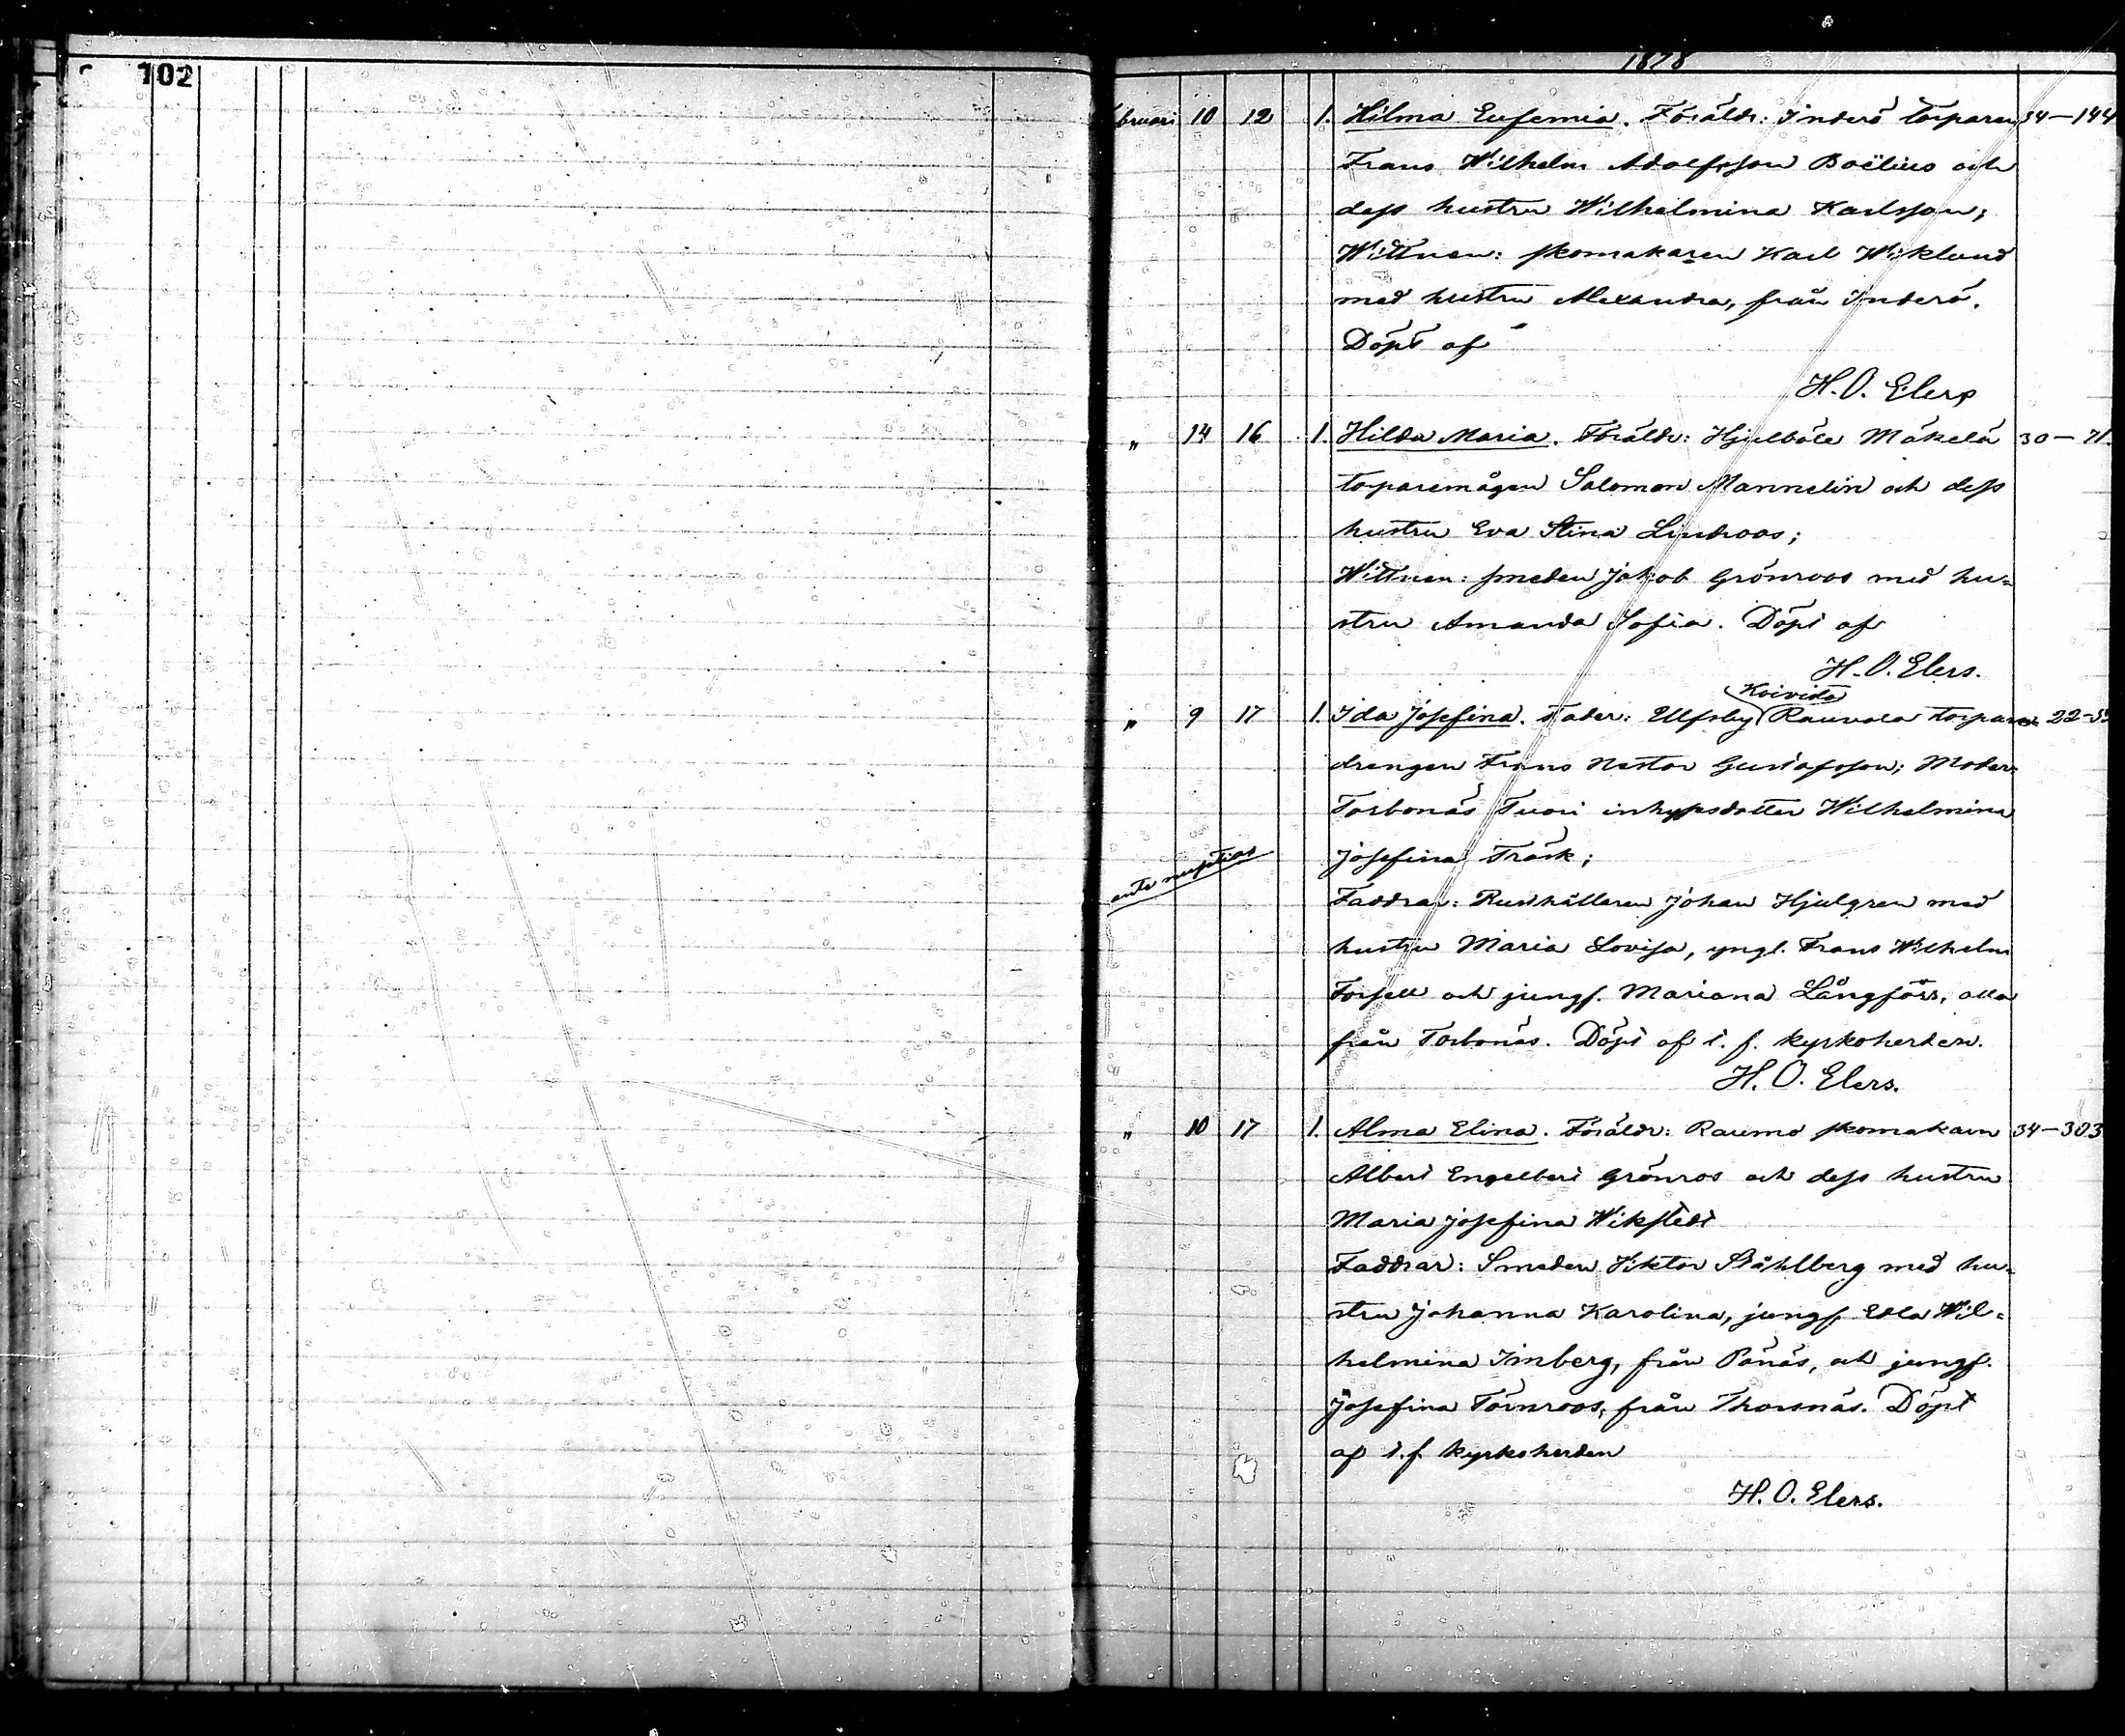 102
1878
bruari 10 12 1. Hilma Eufemia. Föräldr: Inderö torparen 34-144
Frans Wilhelm Adolfsson Boëlius och
dess hustru Wilhelmina Karlsson;
Wittnen: skomakaren Karl Wiklund
med hustru Alexandra, från Inderö.
Döpt af
H. O. Elers
" 14 16 1. Hilda Maria. Föräldr: Hjulböle Mäkelä 30-71.
torparemågen Salomon Mannelin och dess
hustru Eva Stina Lindroos;
Wittnen: smeden Jakob Grönroos med hu-
stru Amanda Sofia. Döpt af
H. O. Elers.
Koivisto
" 9 17 1. Ida Josefina. Fader: Ulfsby Rauvola torpare 22-
drengen Frans Nestor Gustafsson; Moder:
Torbonäs Tuori inhysesdotter Wilhelmina
ante nuptias Josefina Träsk;
Faddrar: Rusthållaren Johan Hjulgren med
hustru Maria Lovisa, yngl. Frans Wilhelm
Forsell och jungf. Mariana Långfors, alla
från Torbonäs. Döpt af t. f. kyrkoherden.
H. O. Elers.
" 10 17 1. Alma Elina. Föräldr: Raumo skomakarn 34-303
Albert Engelbert Grönros och dess hustru
Maria Josefina Wikstedt
Faddrar: Smeden Viktor Ståhlberg med hu-
stru Johanna Karolina, jungf. Edla Wil-
helmina Imberg, från Pänäs, och jungf.
Josefina Törnroos, från Thorsnäs. Döpt
af t. f. kyrkoherden
H. O. Elers.